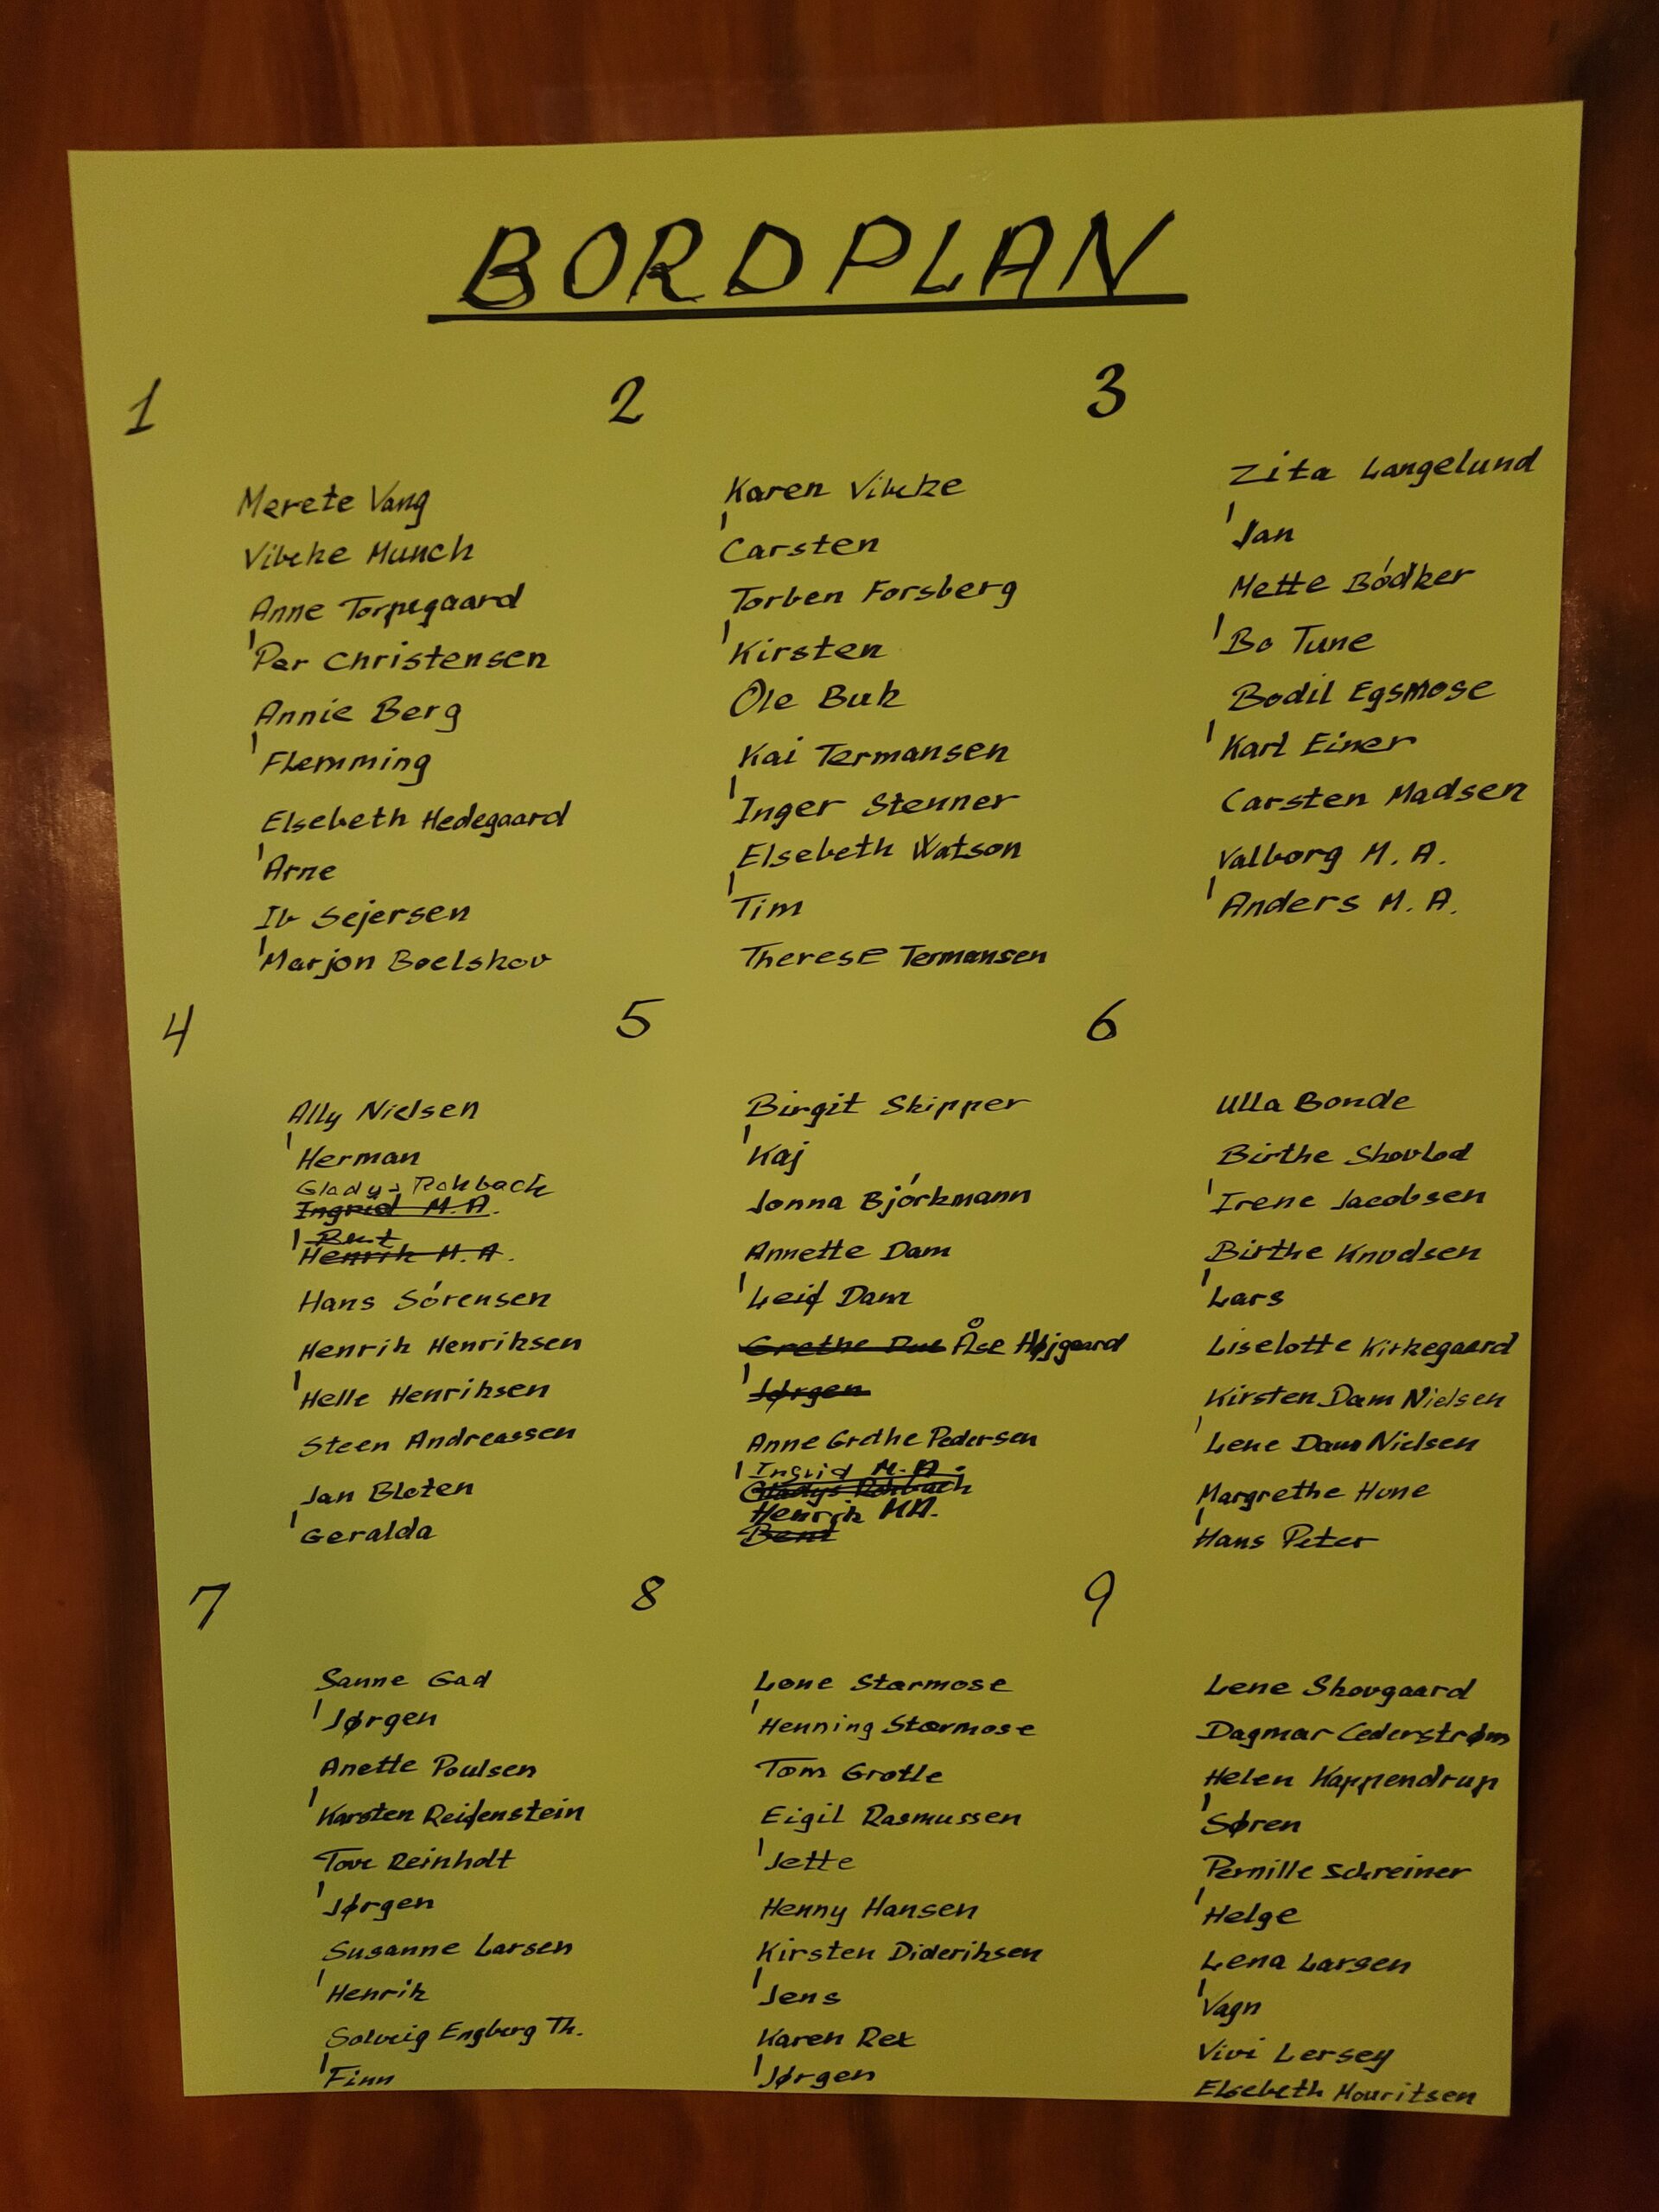 BORDPLAN
1
Merete Vang
Vibeke Munch
Anne Torpegaard
Per Christensen
Annie Berg
Flemming
Elsebeth Hedegaard
Arne
Ib Sejersen
Marjon Boelskov
2
Karen Vibeke
Carsten
Torben Forsberg
Kirsten
Ole Buk
Kai Termansen
Inger Stenner
Elsebeth Watson
Tim
Therese Termansen
3
Zita Langelund
Jan
Mette Bódker
Bo Tune
Bodil Egsmose
Karl Einer
Carsten Madsen
Valborg M. A.
Anders M. A.
4
Ally Nielsen
Herman
Gladys Rohbach
Ingrid M.A.
Bent
Henrik M.A.
Hans Sórensen
Henrik Henriksen
Helle Henriksen
Steen Andreassen
Jan Bloten
Geralda
5
Birgit Skipper
Kaj
Jonna Bjórkmann
Annette Dam
Leif Dam
Grethe Due Åse Højgaard
Jørgen
Anne Grethe Pedersen
Ingrid M.A.
Gladys Rohbach
Henrik MA.
Bent
6
Ulla Bonde
Birthe Skovlod
Irene Jacobsen
Birthe Knudsen
Lars
Liselotte Kirkegaard
Kirsten Dam Nielsen
Lene Dam Nielsen
Margrethe Hune
Hans Peter
7
Sanne Gad
Jørgen
Anette Poulsen
Karsten Reifenstein
Tove Reinholt
Jørgen
Susanne Larsen
Henrik
Solveig Engberg Th.
Finn
8
Lone Starmose
Henning Starmose
Tom Grotle
Eigil Rasmussen
Jette
Henny Hansen
Kirsten Didriksen
Jens
Karen Rex
Jørgen
9
Lene Skovgaard
Dagmar Cederstrøm
Helen Kappendrup
Søren
Pernille Schreiner
Helge
Lena Larsen
Vagn
Vivi Lersey
Elsebeth Mouritsen